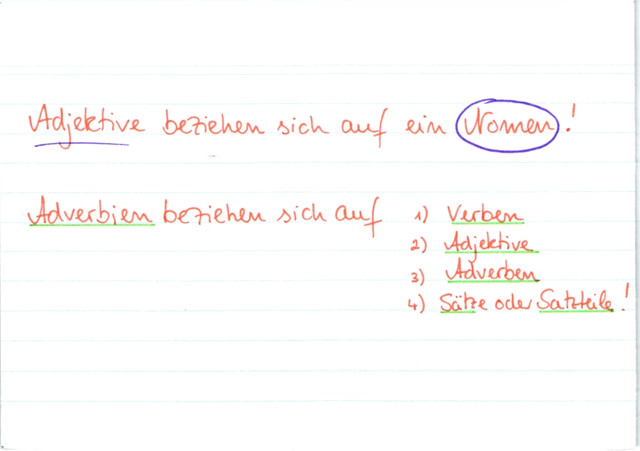 Adjektive beziehen sich auf ein Nomen!
Adverbien beziehen sich auf 1) Verben
2) Adjektive
3) Adverben
4) Sätze oder Satzteile!